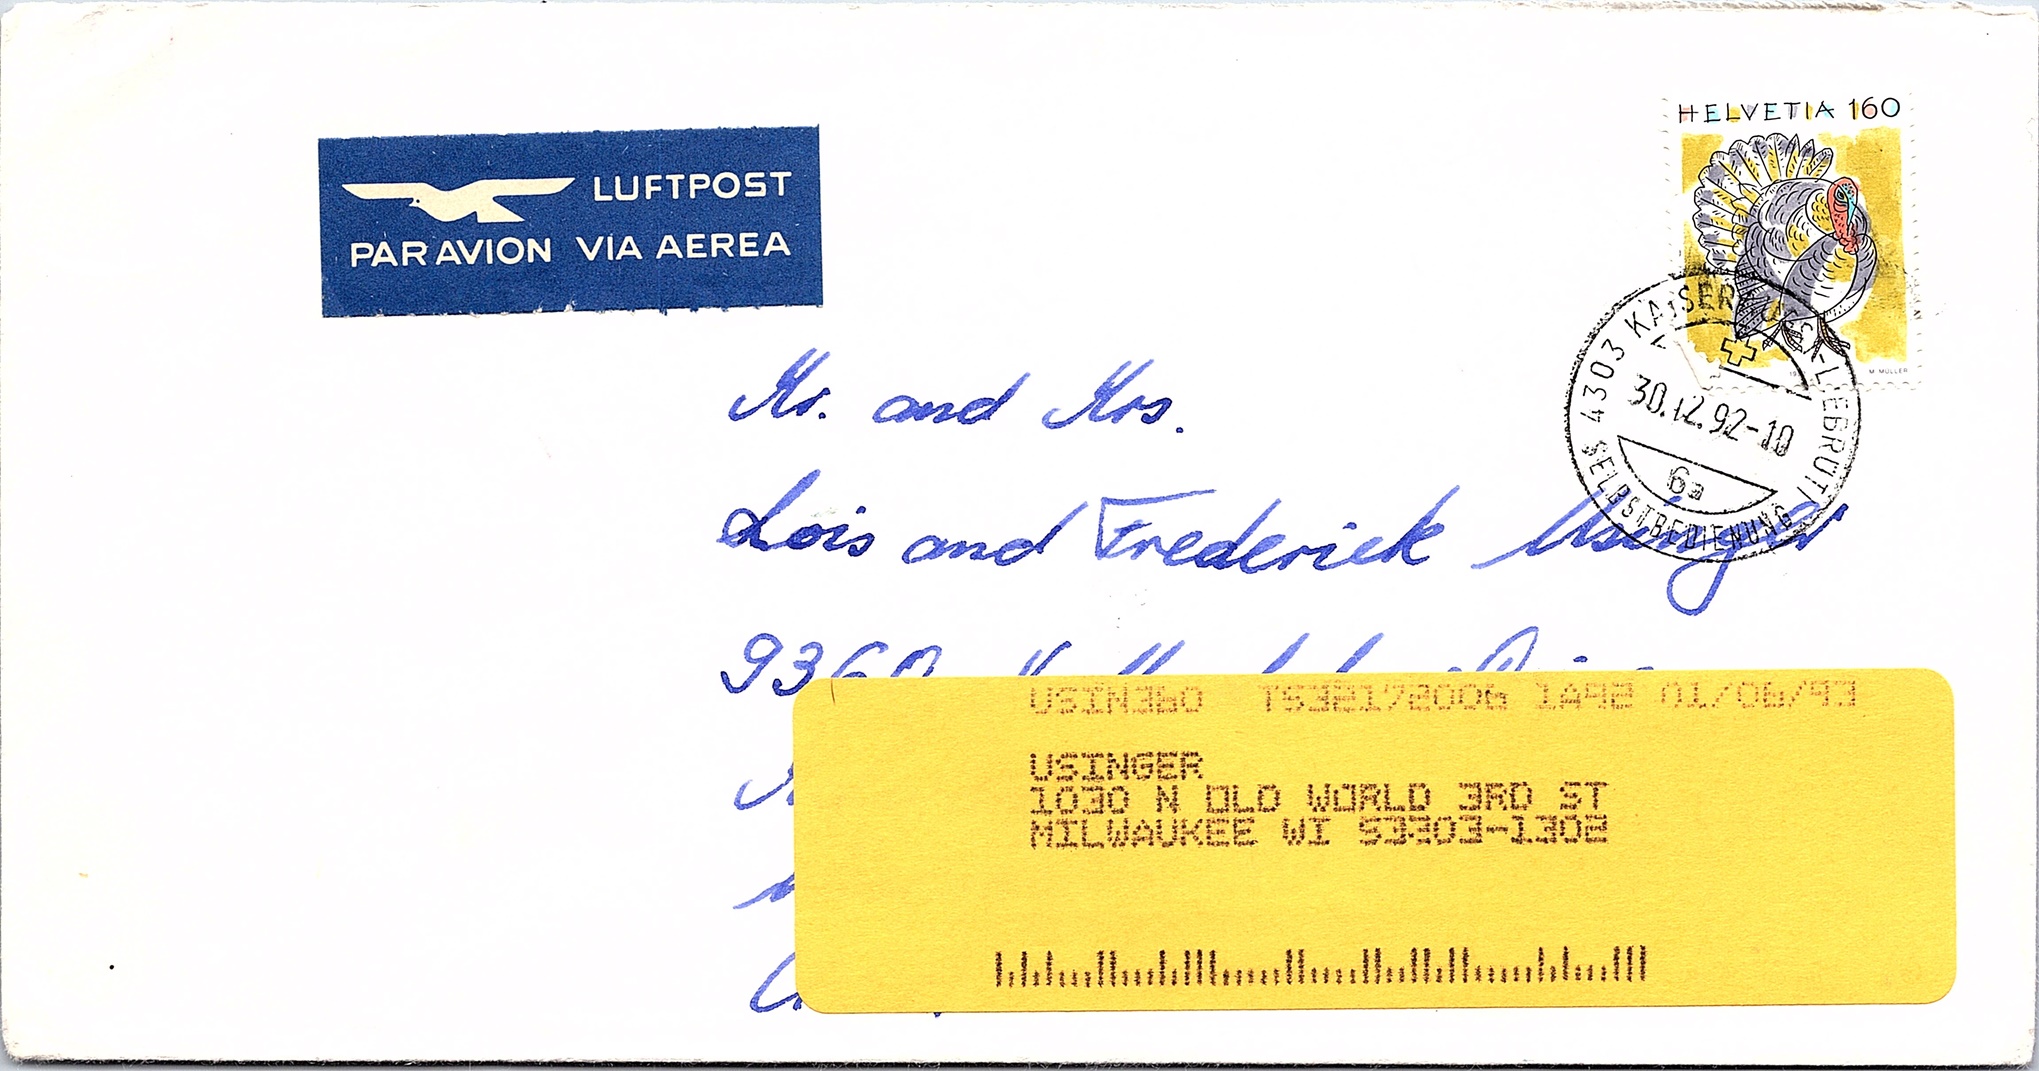 LUFTPOST
PAR AVION VIA AEREA
HELVETIA 160
M. MÜLLER
4303 KAISERAUGST-LIEBRÜTI
30.12.92-10
6a
SELBSTBEDIENUNG
Mr. and Mrs.
Lois and Frederick Usinger
9360
USIN360 TS32172006 1A92 01/06/93
USINGER
1030 N OLD WORLD 3RD ST
MILWAUKEE WI 53203-1302